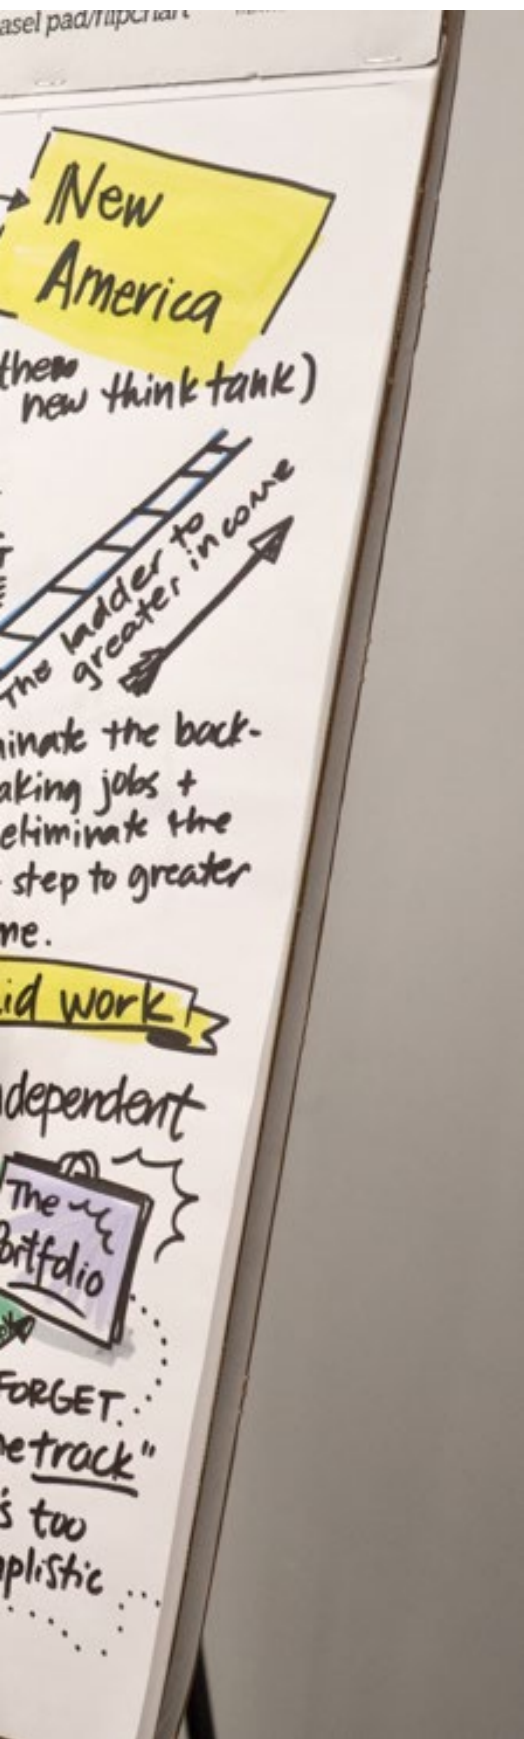 asel pad/flipchart
New
America
them
new think tank)
The ladder to
greater income
inate the back-
aking jobs +
eliminate the
step to greater
me.
id work
dependent
The
Portfolio
FORGET
e track"
s too
plistic